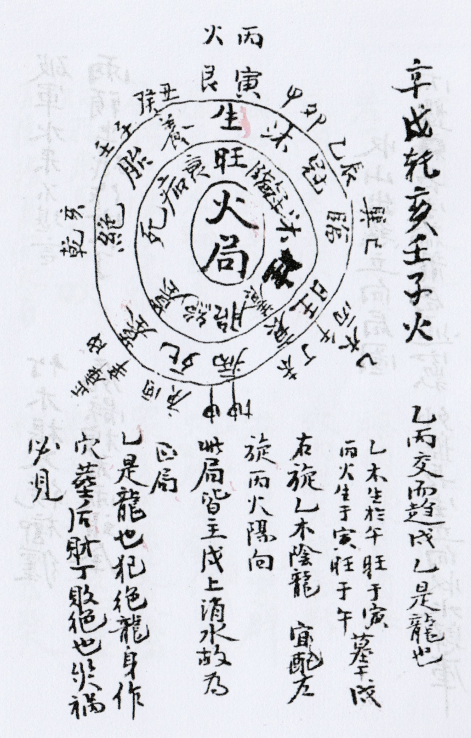 辛戌乾亥壬子火
乙丙交而趋戌乙是龍也
乙木生於午旺于寅
丙火生于寅旺于午 墓于戌
右旋乙木陰龍 宜配左
旋丙火陽向
此局皆主戌上消水故为
正局
乙是龍也犯绝龍身作
穴墓后財丁敗绝也災禍
必見
火局
旺 衰 病 死 胎 沐
生 沐 冠 臨 旺 衰 病 死 絕 胎 養
丙火
寅艮
甲卯
乙辰
巽巳
丙午
丁未
坤申
庚酉
乾亥
壬子
癸丑